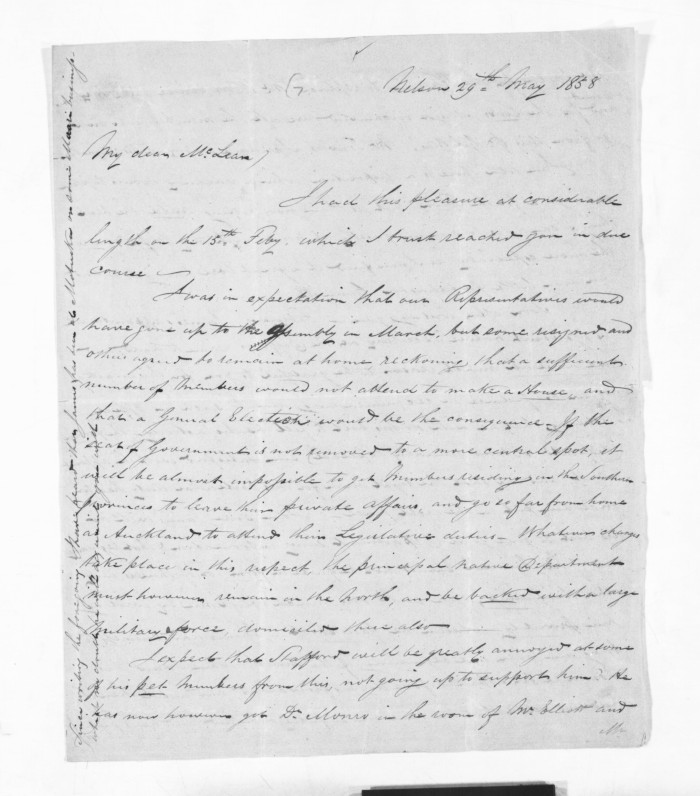 Nelson 29th May 1858
My dear McLean,
I had this pleasure at considerable
length on the 15th Feby. which I trust reached you in due
course —
I was in expectation that our Representatives would
have gone up to the Assembly in March, but some resigned, and
others agreed to remain at home reckoning, that a sufficient
number of Members would not attend to make a House, and
that a General Election would be the consequence — If the
seat of Government is not removed to a more central spot, it
will be almost impossible to get Members residing in the Southern
provinces to leave their private affairs, and go so far from home
as Auckland to attend their Legislative duties — Whatever changes
take place in this respect, the principal native Department
must however remain in the North, and be backed with a large
Military force, domiciled there also —
I expect that Stafford will be greatly annoyed at some
of his pet Members from this, not going up to support him. He
has now however got Dr. Monro in the room of Mr. Elliott and
Mr
Since writing the foregoing I have heard that James has been at Motueka on some Maori
which no doubt he will by acquaint you with